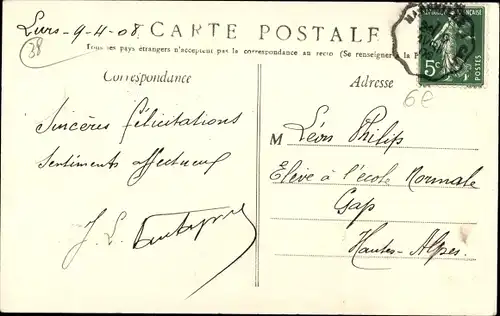 Lurs - 9-4-08.
38
CARTE POSTALE
Tous les pays étrangers n'acceptent pas la correspondance au recto (Se renseigner à la P
RÉPUBLIQUE FRANÇAISE
5c
POSTES
Correspondance
Adresse
6€
Sincères félicitations
Sentiments affectueux
J. L.
M Léon Philip
Elève à l'école Normale
Gap
Hautes-Alpes.